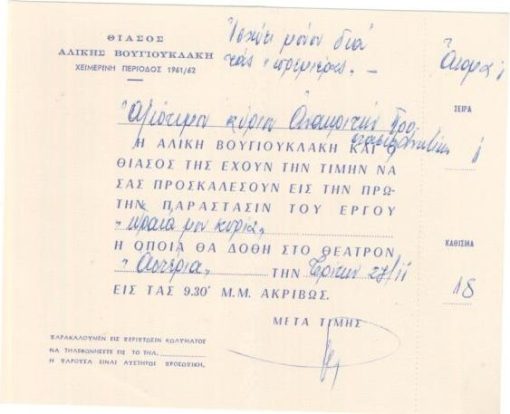 ΘΙΑΣΟΣ
ΑΛΙΚΗΣ ΒΟΥΓΙΟΥΚΛΑΚΗ
ΧΕΙΜΕΡΙΝΗ ΠΕΡΙΟΔΟΣ 1961/62
Ἰσχύει μόνον διά
τάς πρεμιέρας. –
Ἄτομα 1
Ἀξιότιμον κύριον
Η ΑΛΙΚΗ ΒΟΥΓΙΟΥΚΛΑΚΗ ΚΑΙ Ο
ΘΙΑΣΟΣ ΤΗΣ ΕΧΟΥΝ ΤΗΝ ΤΙΜΗΝ ΝΑ
ΣΑΣ ΠΡΟΣΚΑΛΕΣΟΥΝ ΕΙΣ ΤΗΝ ΠΡΩ-
ΤΗΝ ΠΑΡΑΣΤΑΣΙΝ ΤΟΥ ΕΡΓΟΥ
"Ὡραία μου κυρία"
Η ΟΠΟΙΑ ΘΑ ΔΟΘΗ ΣΤΟ ΘΕΑΤΡΟΝ
"Ἀστέρια" ΤΗΝ Τρίτην 28/11
ΕΙΣ ΤΑΣ 9.30' Μ.Μ. ΑΚΡΙΒΩΣ.
ΜΕΤΑ ΤΙΜΗΣ
ΠΑΡΑΚΑΛΟΥΜΕΝ ΕΙΣ ΠΕΡΙΠΤΩΣΙΝ ΚΩΛΥΜΑΤΟΣ
ΝΑ ΤΗΛΕΦΩΝΗΣΕΤΕ ΕΙΣ ΤΟ ΤΗΛ.
Η ΠΑΡΟΥΣΑ ΕΙΝΑΙ ΑΥΣΤΗΡΩΣ ΠΡΟΣΩΠΙΚΗ.
ΣΕΙΡΑ
1
ΚΑΘΙΣΜΑ
18